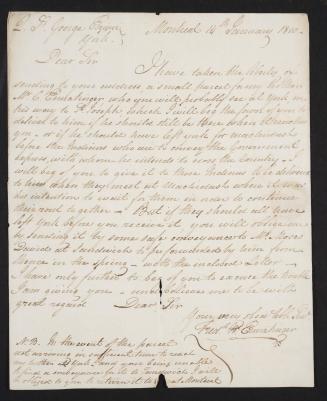 Montreal 14th January 1810.
George
York
Dear Sir
I have taken the liberty of
sending to your address, a small parcel for my brother
Mr C. Ermatinger who you will probably see at York on
his way to St Joseph, which I will beg the favor of you to
deliver to him if he should still be there when it reaches
you - or if he should have left York for
before the Indians who are to convey the Government
express, with whom he intends to cross the Country - I
will beg of you to give it to those Indians to be delivered
to him when they meet at where it was
his intention to wait for them in order to continue
their route together - But if they should all have
left York before you receive it you will oblige me
by sending it by some safe conveyance to Mr James
David at Sandwich to be forwarded by him from
thence in the spring - with the inclosed Letter -
I have only further to beg of you to excuse the trouble
I am giving you & believe me to be with
great regard Dear Sir
Your very Obed
Fred Wm Ermatinger
N.B. In the event of the parcel
not arriving in sufficient time to reach
my brother at York - and your being unable
to find a conveyance for it to Sandwich I will
be obliged to you to return it to me at Montreal